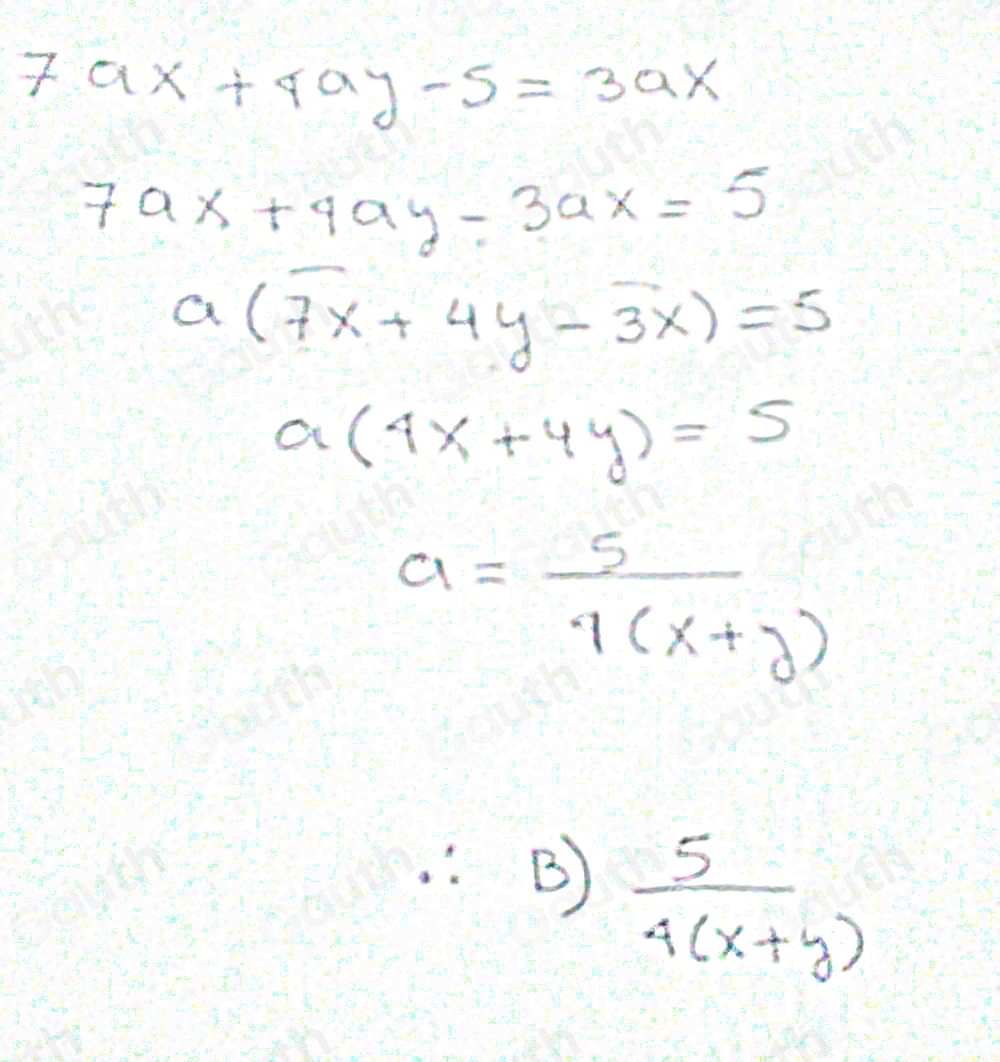 7ax + 4ay - 5 = 3ax
7ax + 4ay - 3ax = 5
a(7x + 4y - 3x) = 5
a(4x + 4y) = 5
a = 5 / 4(x + y)
∴ B) 5 / 4(x + y)